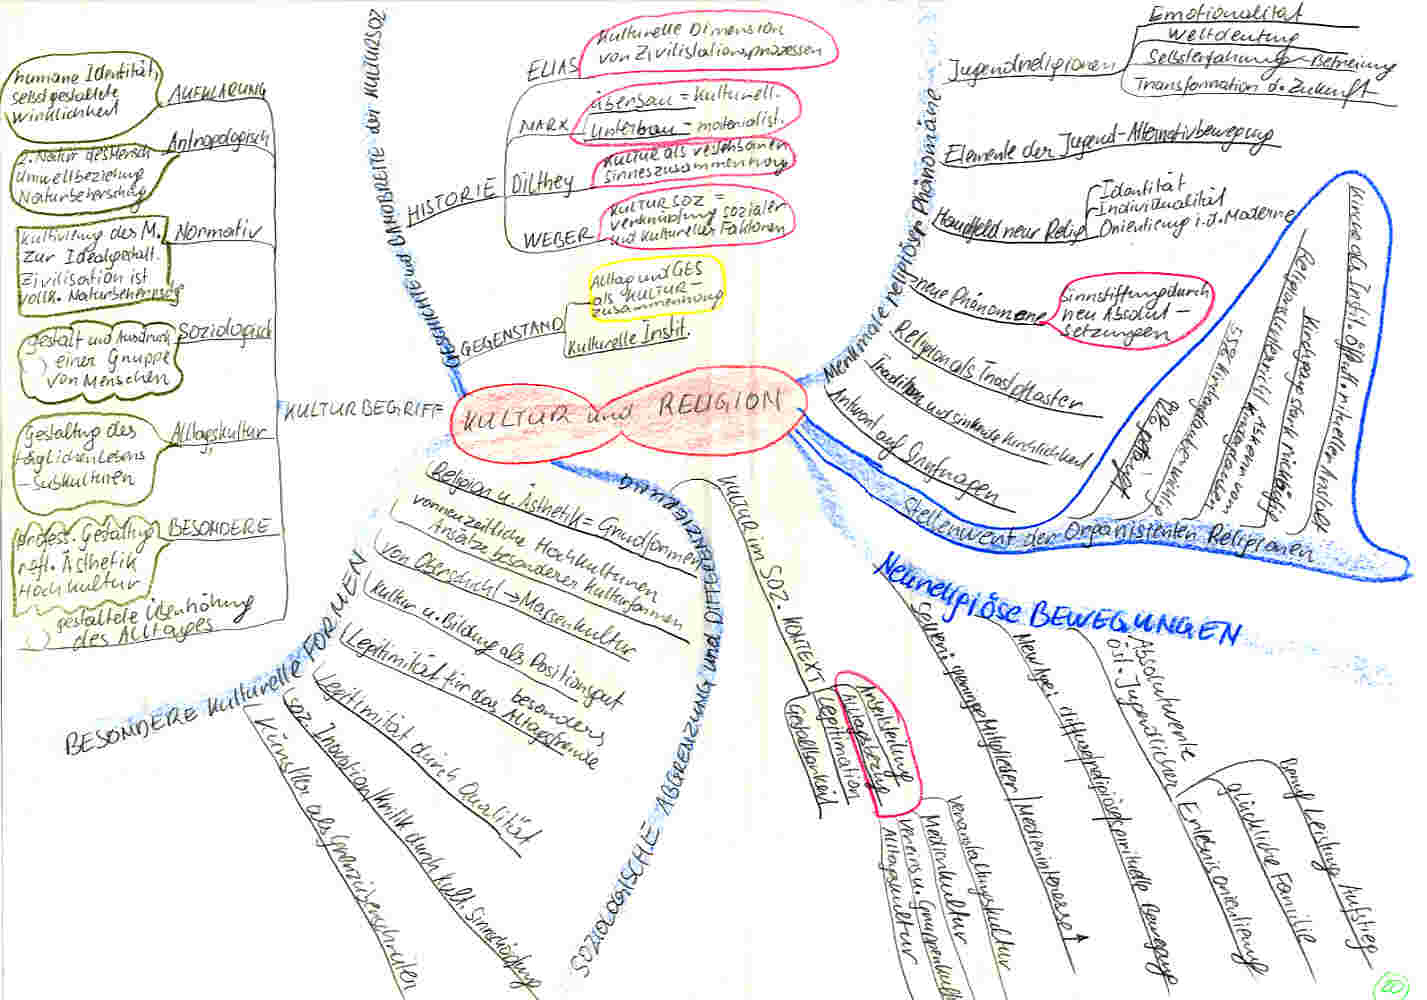 KULTUR und RELIGION
GESCHICHTE und BANDBREITE der KULTURSOZ
HISTORIE
ELIAS
Kulturelle Dimension
von Zivilisationsprozessen
MARX
Überbau = Kulturell.
Unterbau = materialist.
Dilthey
KULTUR als verstehbaren
Sinneszusammenhang
WEBER
KULTURSOZ =
Verknüpfung sozialer
und kultureller Faktoren
GEGENSTAND
Alltag und GES
als KULTUR-
zusammenhang
Kulturelle Instit.
KULTURBEGRIFF
AUFKLÄRUNG
humane Identität,
selbstgestaltete
Wirklichkeit
Antropologisch
2. Natur des Mensch
Umweltbeziehung
Naturbeherrschung
Normativ
Kultivierung des M.
zur Idealgestalt.
Zivilisation ist
vollk. Naturbeherrschg
Soziologisch
Gestalt und Ausdruck
einer Gruppe
von Menschen
Alltagskultur
Gestaltung des
täglichen Lebens
- Subkulturen
BESONDERE
profess. Gestaltung
refl. Ästhetik
Hochkultur
gestaltete Überhöhung
des Alltages
BESONDERE Kulturelle FORMEN
Religion u. Ästhetik = Grundformen
vorneuzeitliche Hochkulturen
Ansätze besonderer Kulturformen
von Oberschicht → Massenkultur
Kultur u. Bildung als Positionsgut
Legitimität für das besonders
Alltagsfremde
Legitimität durch Qualität
soz. Inovation/Kritik durch kult. Sinnschöpfung
Künstler als Grenzüberschreiter
SOZIOLOGISCHE ABGRENZUNG und DIFFERENZIERUNG
KULTUR im SOZ. KONTEXT
Arbeitsteilung
Alltagsbezug
Legitimation
Gestaltbarkeit
Veranstaltungskultur
Medienkultur
Vereins u. Gruppenkult
Alltagskultur
Neureligiöse BEWEGUNGEN
geringe Mitglieder/Medieninteresse
New Age: diffuse religiöse spirituelle Bewegung
Absolutwerte
öst. Jugendlicher
Beruf Leistung Aufstieg
glückliche Familie
Erlebnisorientierung
Stellenwert der Organisierten Religionen
Kirche als Instil. öffentl. mit
Kirchgang stark rückläufig
55% Kirchenglauben wichtig
Merkmale religiöser Phänomäne
Jugendreligionen
Emotionalität
Weltdeutung
Selbsterfahrung-Befreiung
Transformation d. Zukunft
Elemente der Jugend-Alternativbewegung
Handfeld neur Relig
Identität
Individualität
Orientierung i.d. Moderne
neue Phänomene
Sinnstiftung durch
neu Absolut-
setzungen
Religion als Trostpflaster
Tradition und sinkende Kirchlichkeit
Antwort auf Grundfragen
20